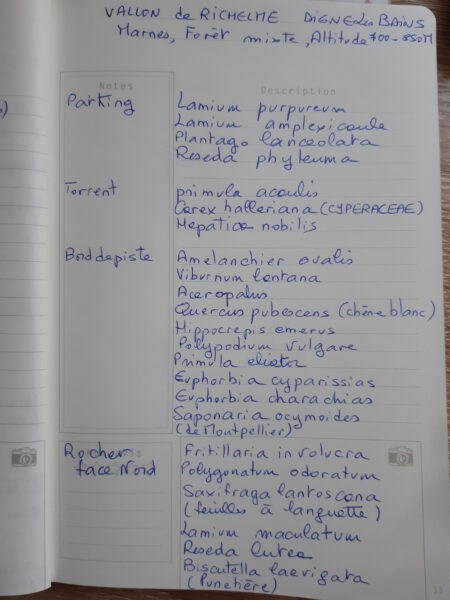 VALLON de RICHELME DIGNE les BAINS
Marnes, Forêt mixte, Altitude 700-850M
Notes Description
Parking Lamium purpureum
Lamium amplexicaule
Plantago lanceolata
Reseda phyteuma
Torrent primula acaulis
Carex halleriana (CYPERACEAE)
Hepatica nobilis
Bord de piste Amelanchier ovalis
Viburnum lantana
Acer opalus
Quercus pubescens (chêne blanc)
Hippocrepis emerus
Polypodium vulgare
Primula elatior
Euphorbia cyparissias
Euphorbia charachias
Saponaria ocymoides
(de Montpellier)
Rocher Fritillaria involucra
face Nord Polygonatum odoratum
Saxifraga lantoscana
(feuilles à languette)
Lamium maculatum
Reseda lutea
Biscutella laevigata
(Lunetière)